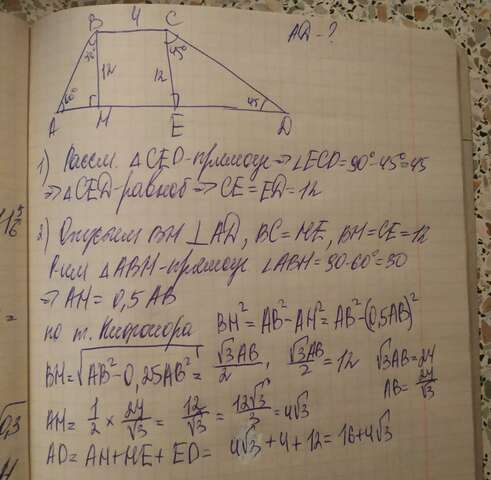 B 4 C
AD - ?
30° 45°
12 12
60° 45
A H E D
1) Рассм. △CED-прямоуг ⇒ ∠ECD=90°-45°=45
⇒ △CED-равноб ⇒ CE=ED=12
2) Опустим BH ⊥ AD, BC=HE, BH=CE=12
Р-им △ABH-прямоуг ∠ABH=90-60°=30
⇒ AH=0,5AB
по т. Пифагора BH²=AB²-AH²=AB²-(0,5AB)²
BH=√(AB²-0,25AB²)=√3AB/2, √3AB/2=12 √3AB=24
AB=24/√3
AH=1/2×24/√3=12/√3=12√3/3=4√3
AD=AH+HE+ED= 4√3+4+12=16+4√3
=